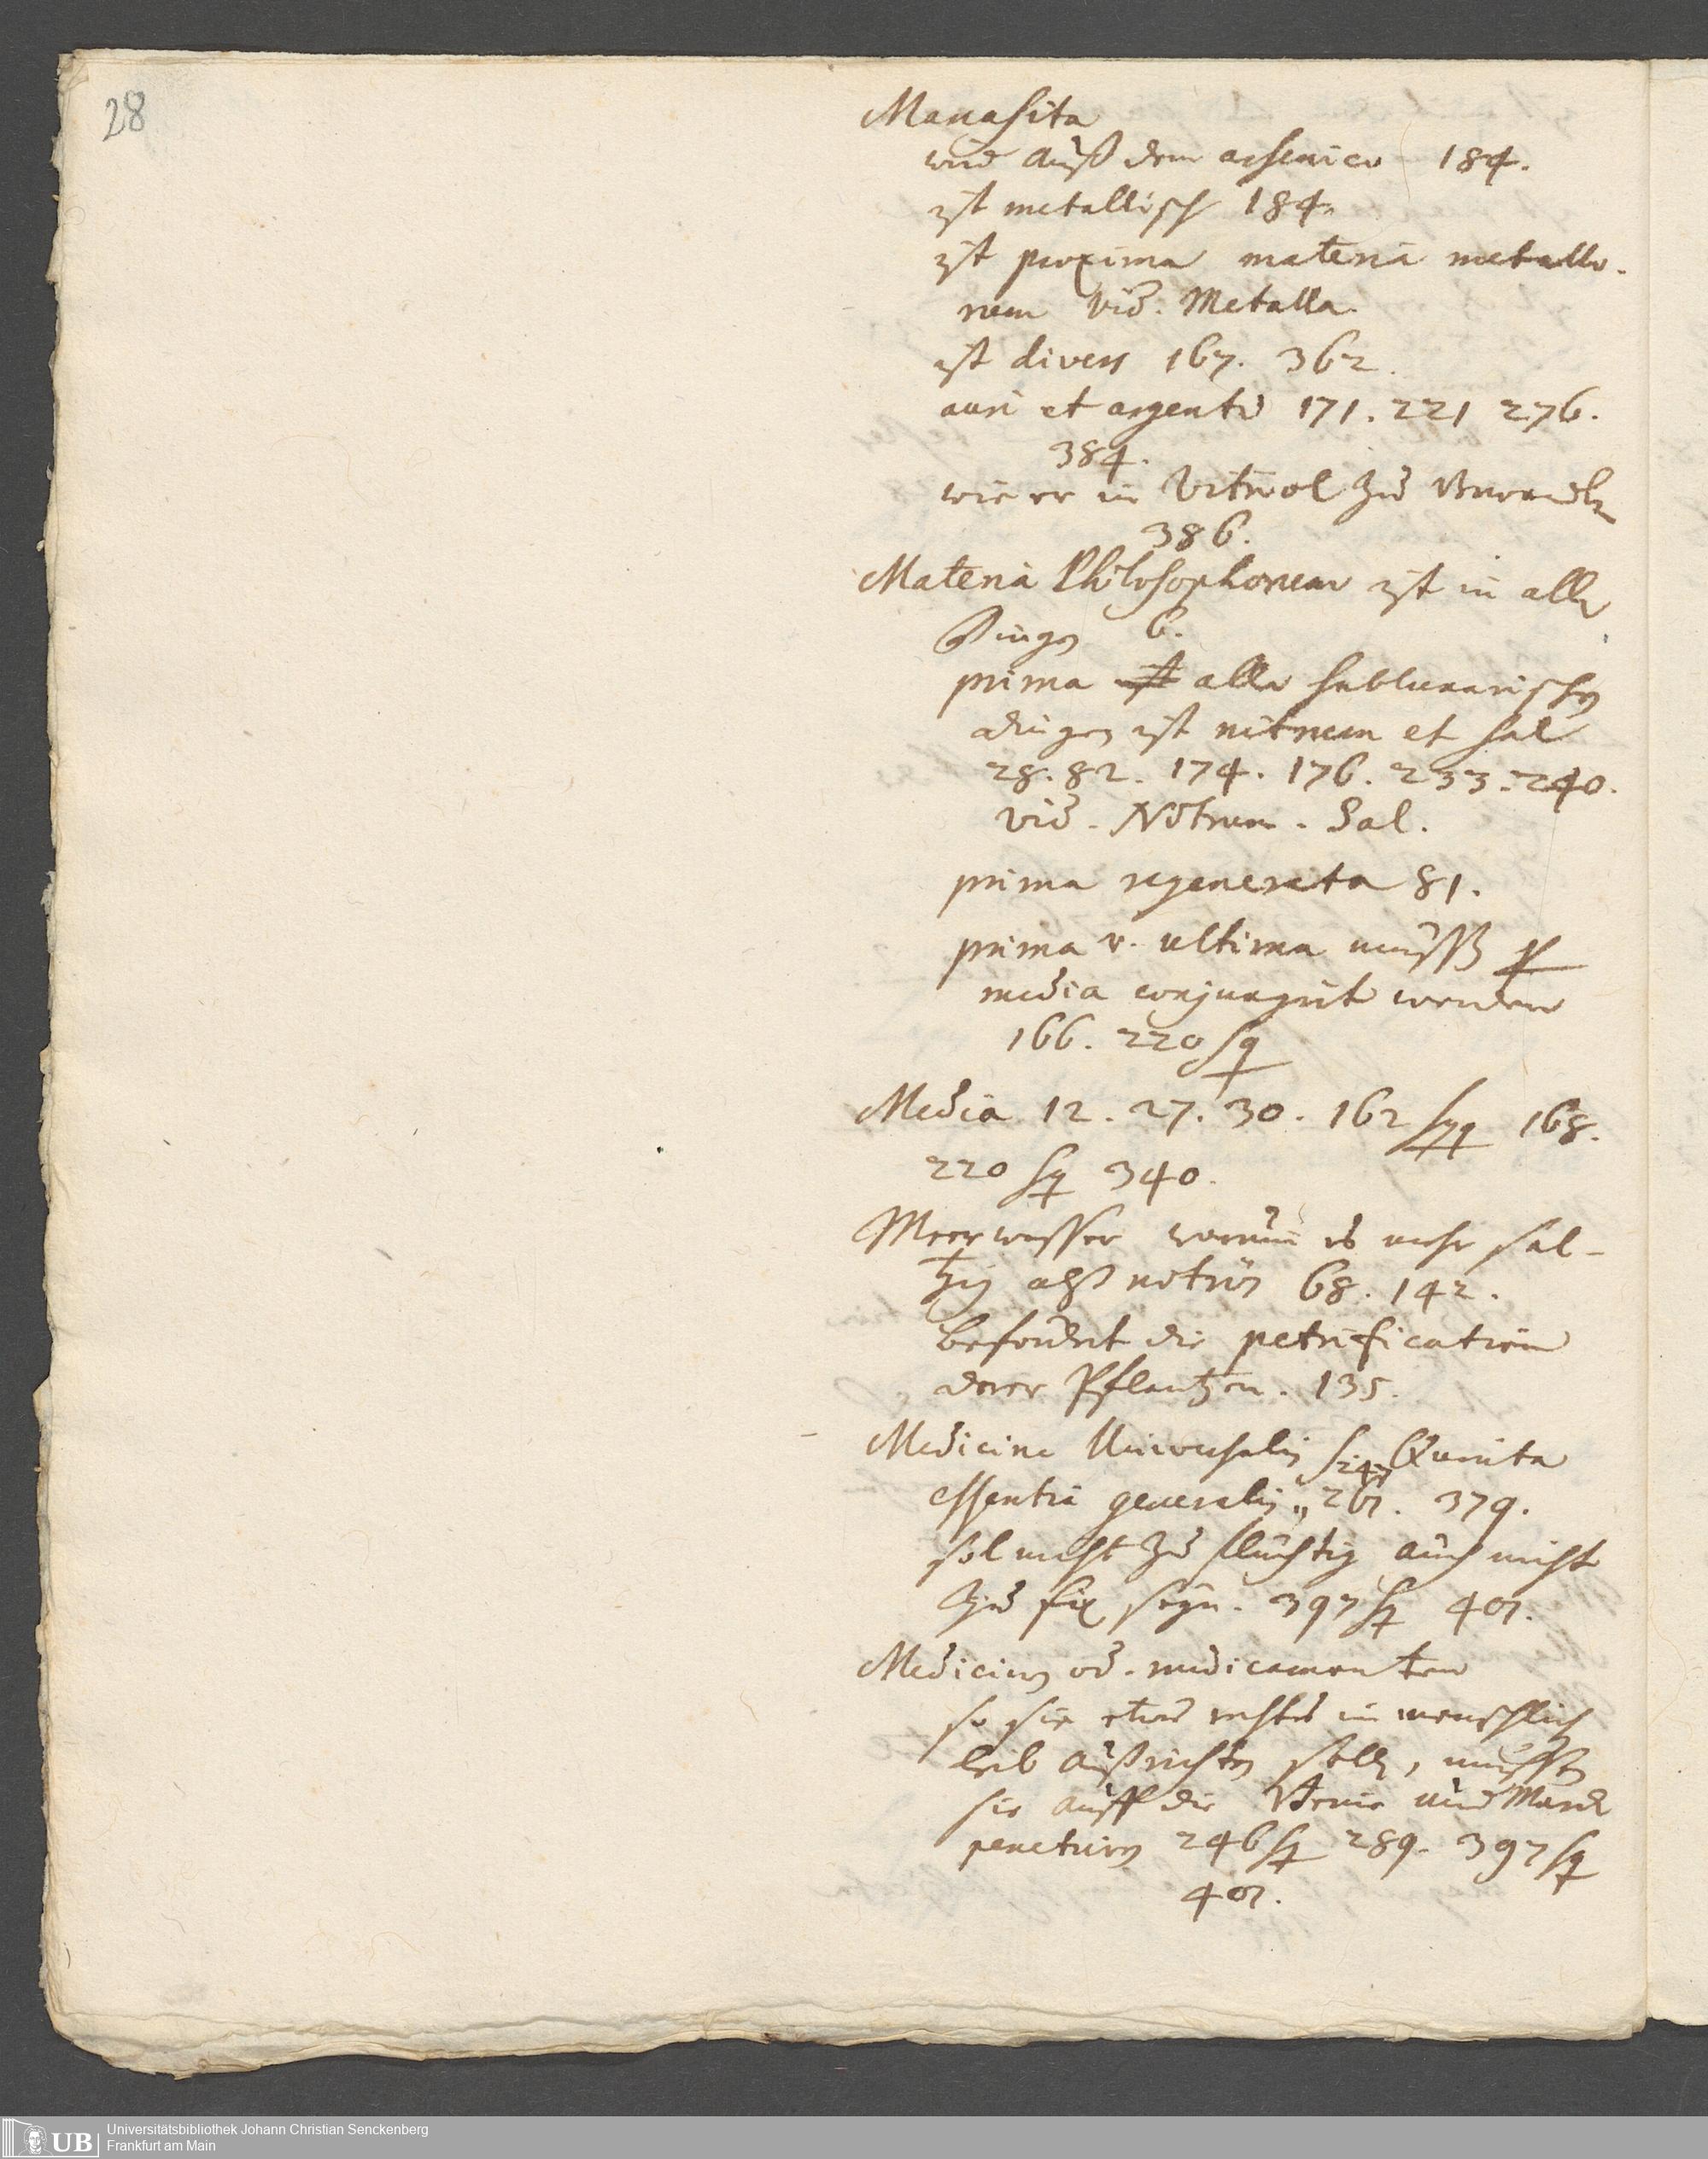 28
Marcasita
wird auß dem arsenico 184.
ist metallisch 184.
ist proxima materia metallo-
rum vid. Metalla.
ist divers 167. 362.
auri et argenti 171. 221 276.
384.
wie er in Vitriol zu
386.
Materia Philosophorum ist in allen
Dingen 6.
prima aller sublunarischen
dingen ist nitrum et sal
28. 82. 174. 176. 233. 240.
vid. Nitrum. Sal.
prima regenerata 81.
prima v. ultima müssen p
media conjungirt werden
166. 220 sq
Media 12. 27. 30. 162 sqq 168.
220 sq 340.
Meerwasser warum es mehr sal-
tzig alß nitrös 68. 142.
befördert die petrification
derer Pflantzen. 135.
Medicina Universalis s. Quinta
247
essentia generalis " 261. 379.
sol nicht zu flüchtig auch nicht
zu fix seyn. 397 sq 401.
Medicin od. medicamenten
so sie etwas rechts im menschlichen
leib außrichten sollen, müssen
sie auff die und Marck
penetriren 246 sq 289. 397 sq
401.
UB
Universitätsbibliothek Johann Christian Senckenberg
Frankfurt am Main